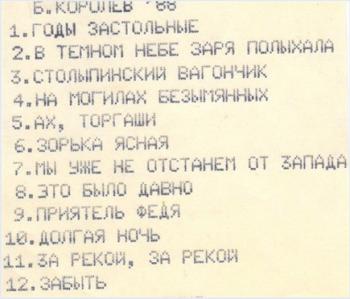 Б.КОРОЛЕВ '88
1.ГОДЫ ЗАСТОЛЬНЫЕ
2.В ТЕМНОМ НЕБЕ ЗАРЯ ПОЛЫХАЛА
3.СТОЛЫПИНСКИЙ ВАГОНЧИК
4.НА МОГИЛАХ БЕЗЫМЯННЫХ
5.АХ, ТОРГАШИ
6.ЗОРЬКА ЯСНАЯ
7.МЫ УЖЕ НЕ ОТСТАНЕМ ОТ ЗАПАДА
8.ЭТО БЫЛО ДАВНО
9.ПРИЯТЕЛЬ ФЕДЯ
10.ДОЛГАЯ НОЧЬ
11.ЗА РЕКОЙ, ЗА РЕКОЙ
12.ЗАБЫТЬ